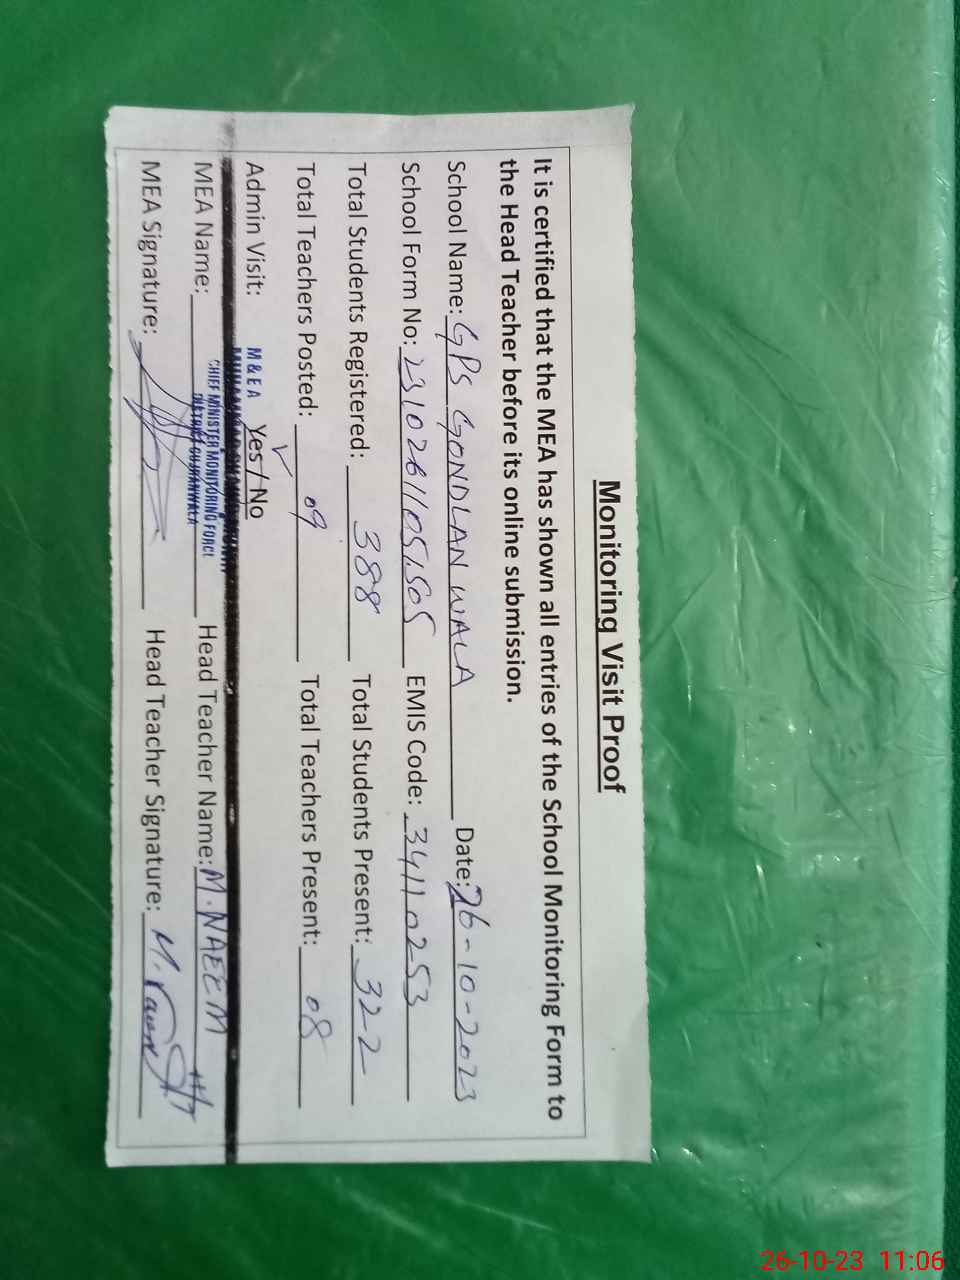 Monitoring Visit Proof
It is certified that the MEA has shown all entries of the School Monitoring Form to
the Head Teacher before its online submission.
School Name: GPS GONDLAN WALA Date: 26-10-2023
School Form No: 23102611051505 EMIS Code: 34110253
Total Students Registered: 388 Total Students Present: 322
Total Teachers Posted: 09 Total Teachers Present: 08
Admin Visit: Yes / No
M&EA
MEA Name: Head Teacher Name: M. NAEEM
CHIEF MINISTER MONITORING FORCE
DISTRICT GUJRANWALA
MEA Signature: Head Teacher Signature:
26-10-23 11:06